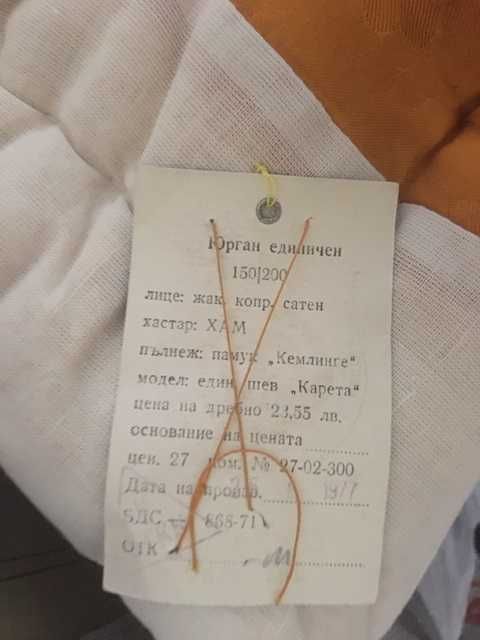 Юрган единичен
150|200
лице: жак. копр. сатен
хастар: ХАМ
пълнеж: памук „Кемлинге“
модел: един. шев „Карета“
цена на дребно 23,55 лв.
основание на цената
цен. 27 пом. № 27-02-300
Дата на произв. 1977
БДС — 868-71
ОТК